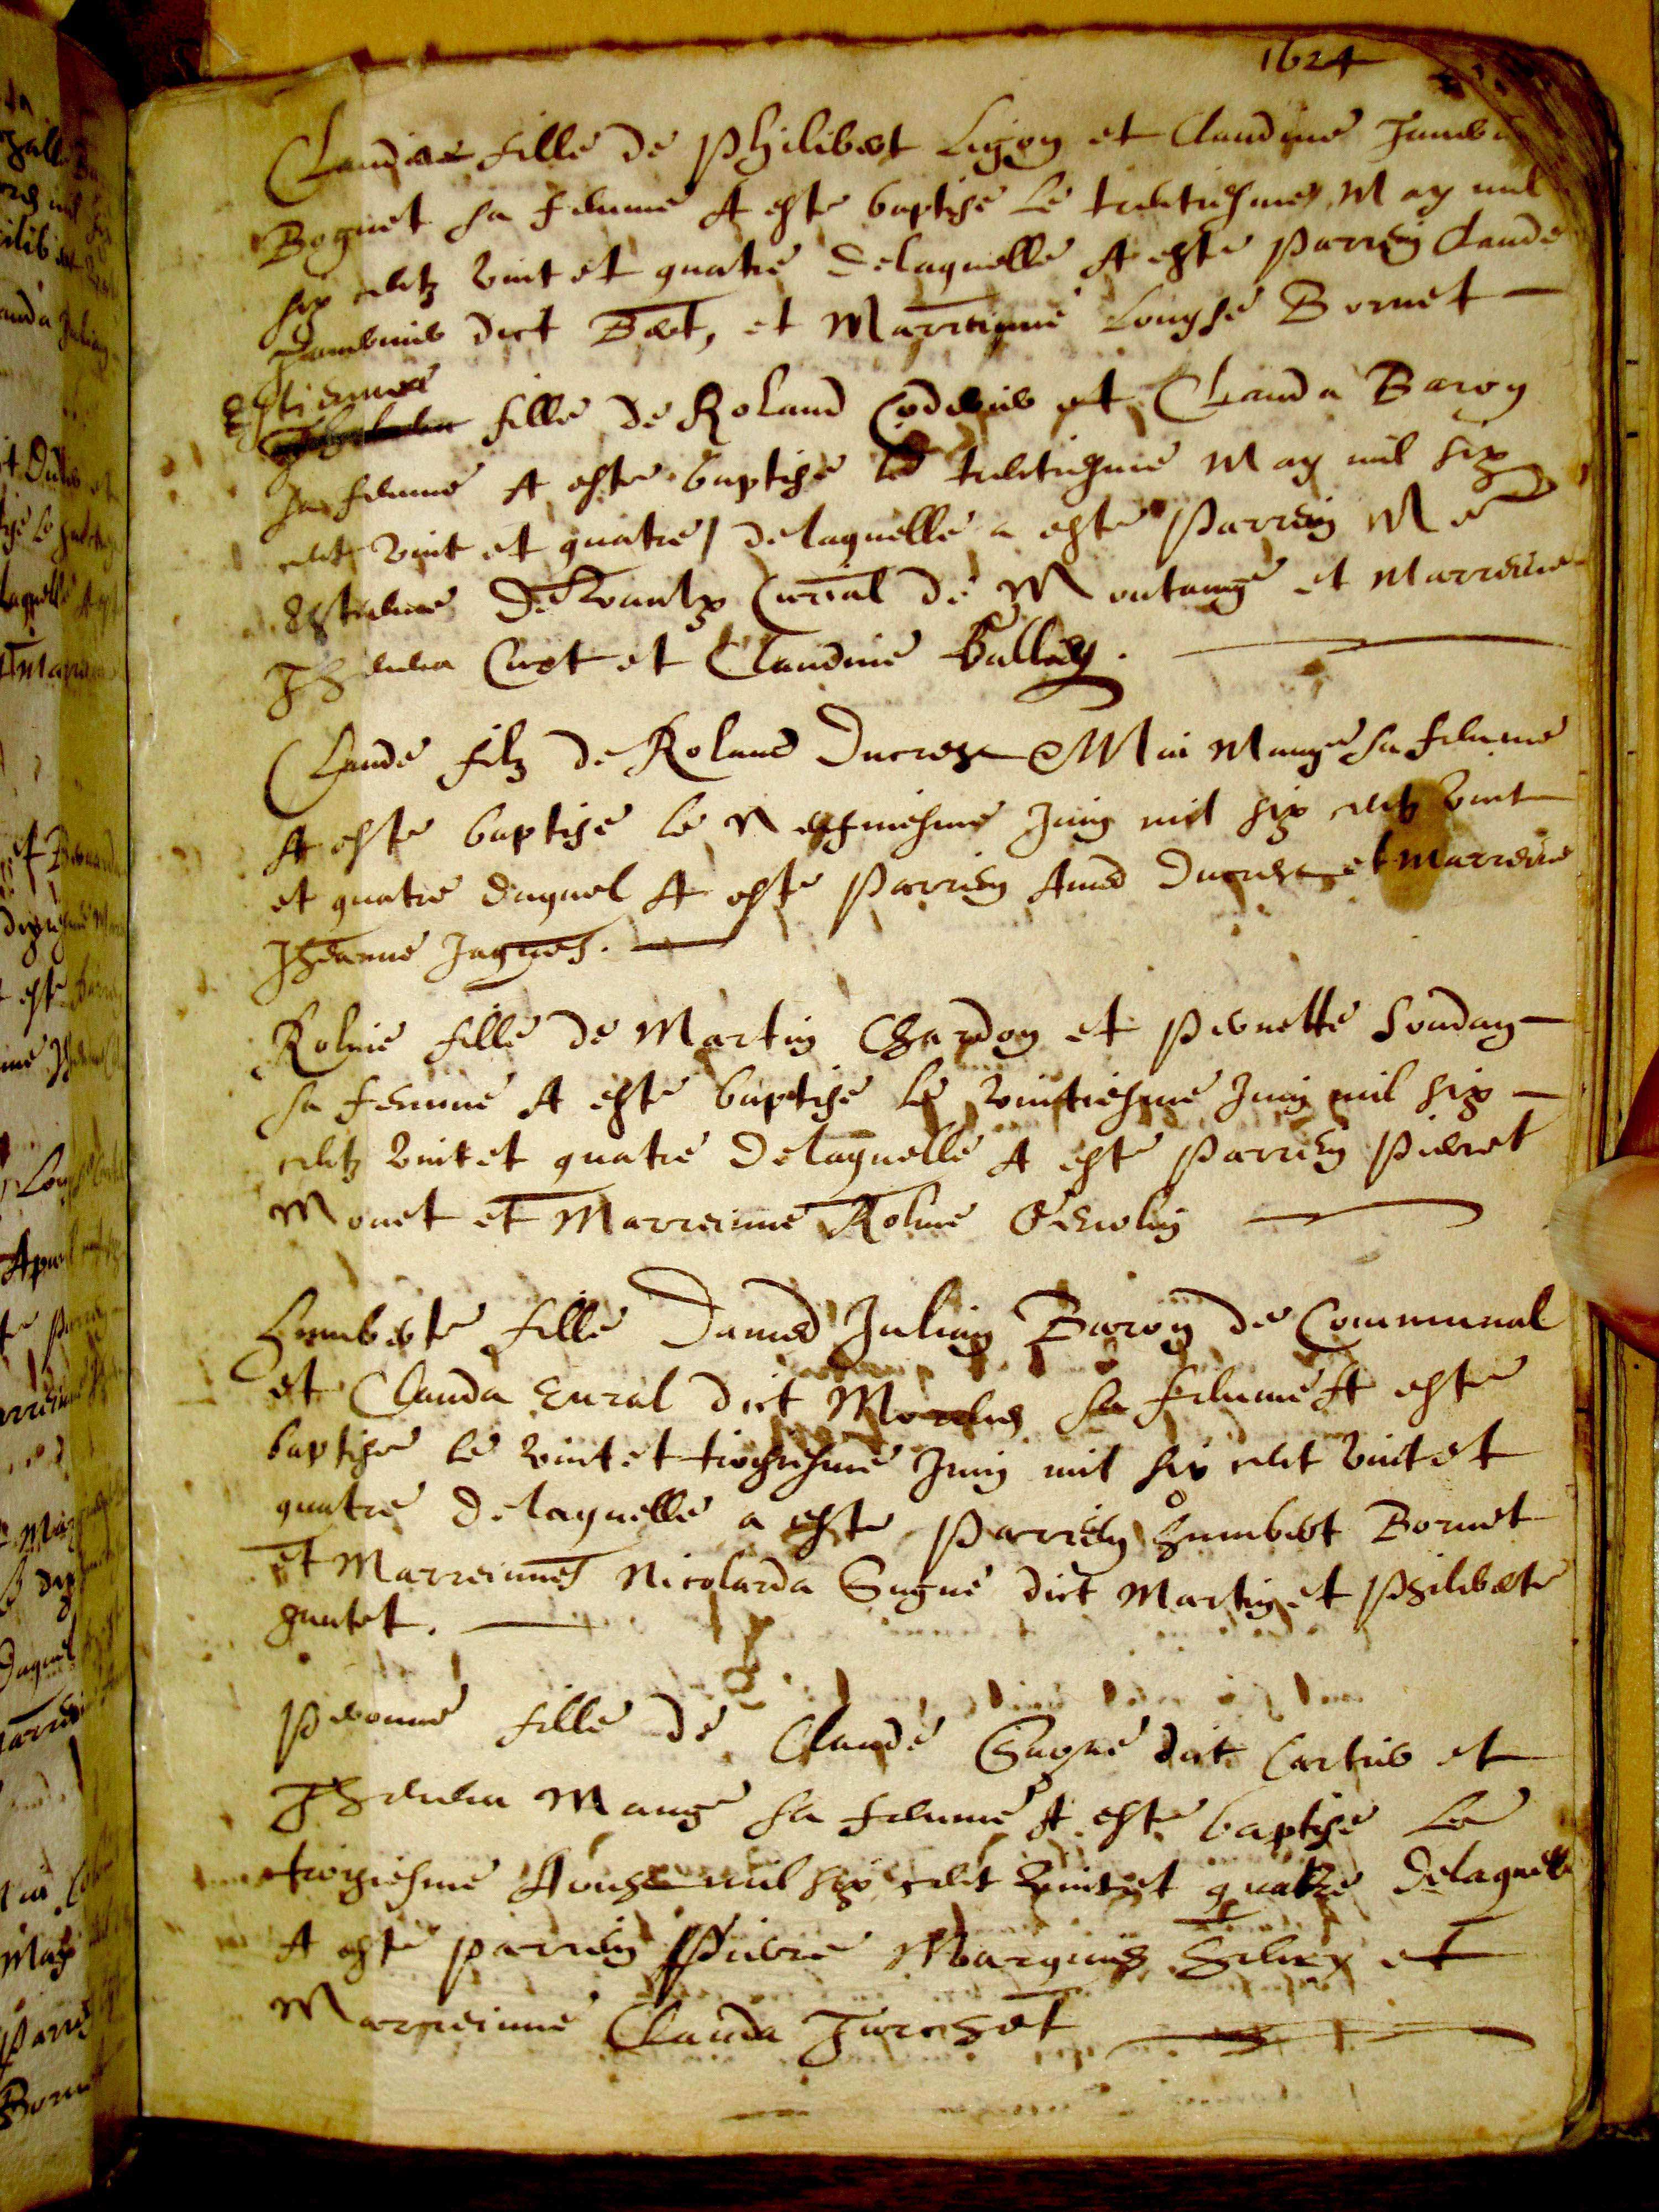 1624
Claudine fille de Philibert Ligon et Claudine
Bornet sa femme A este baptisé le trentiesme May mil
six centz vint et quatre delaquelle A este parrein Claude
dict Bert, et Marreinne Loyse Bornet
Estienna
fille de Roland et Clauda Baron
sa femme A este baptisé le trentiesme May mil six
cent vint et quatre / delaquelle a este Parrein Mre
Estienne Curial de Montange et Marreine
Jhenna Curt et Claudine Balley.
Claude filz de Roland Ducrest et Mia Mange sa femme
A este baptisé le Neufviesme Juin mil six centz vint
et quatre duquel A este Parrein Amed Ducrest et Marreine
Jheanne Jaques.
Roline fille de Martin Chardon et Pernette
sa femme A este baptisé le vintiesme Juin mil six
centz vint et quatre delaquelle A este Parrein Pierret
Monet et Marreinne Roline
Humberte fille Damed Julian Baron de Communal
et Clauda dict sa femme A este
baptisé le vint et troysiesme Juin mil six cent vint et
quatre delaquelle a este Parrein Humbert Bornet
et Marreinnes Nicolarda Sugne dict Martin et Philiberte
Pernonne fille de Claude dict et
Jhenna Mange sa femme A este baptisé le
troysiesme Aoust mil six cent vint et quatre delaquelle
A este parrein Pierre Marquis et
Marreinne Clauda